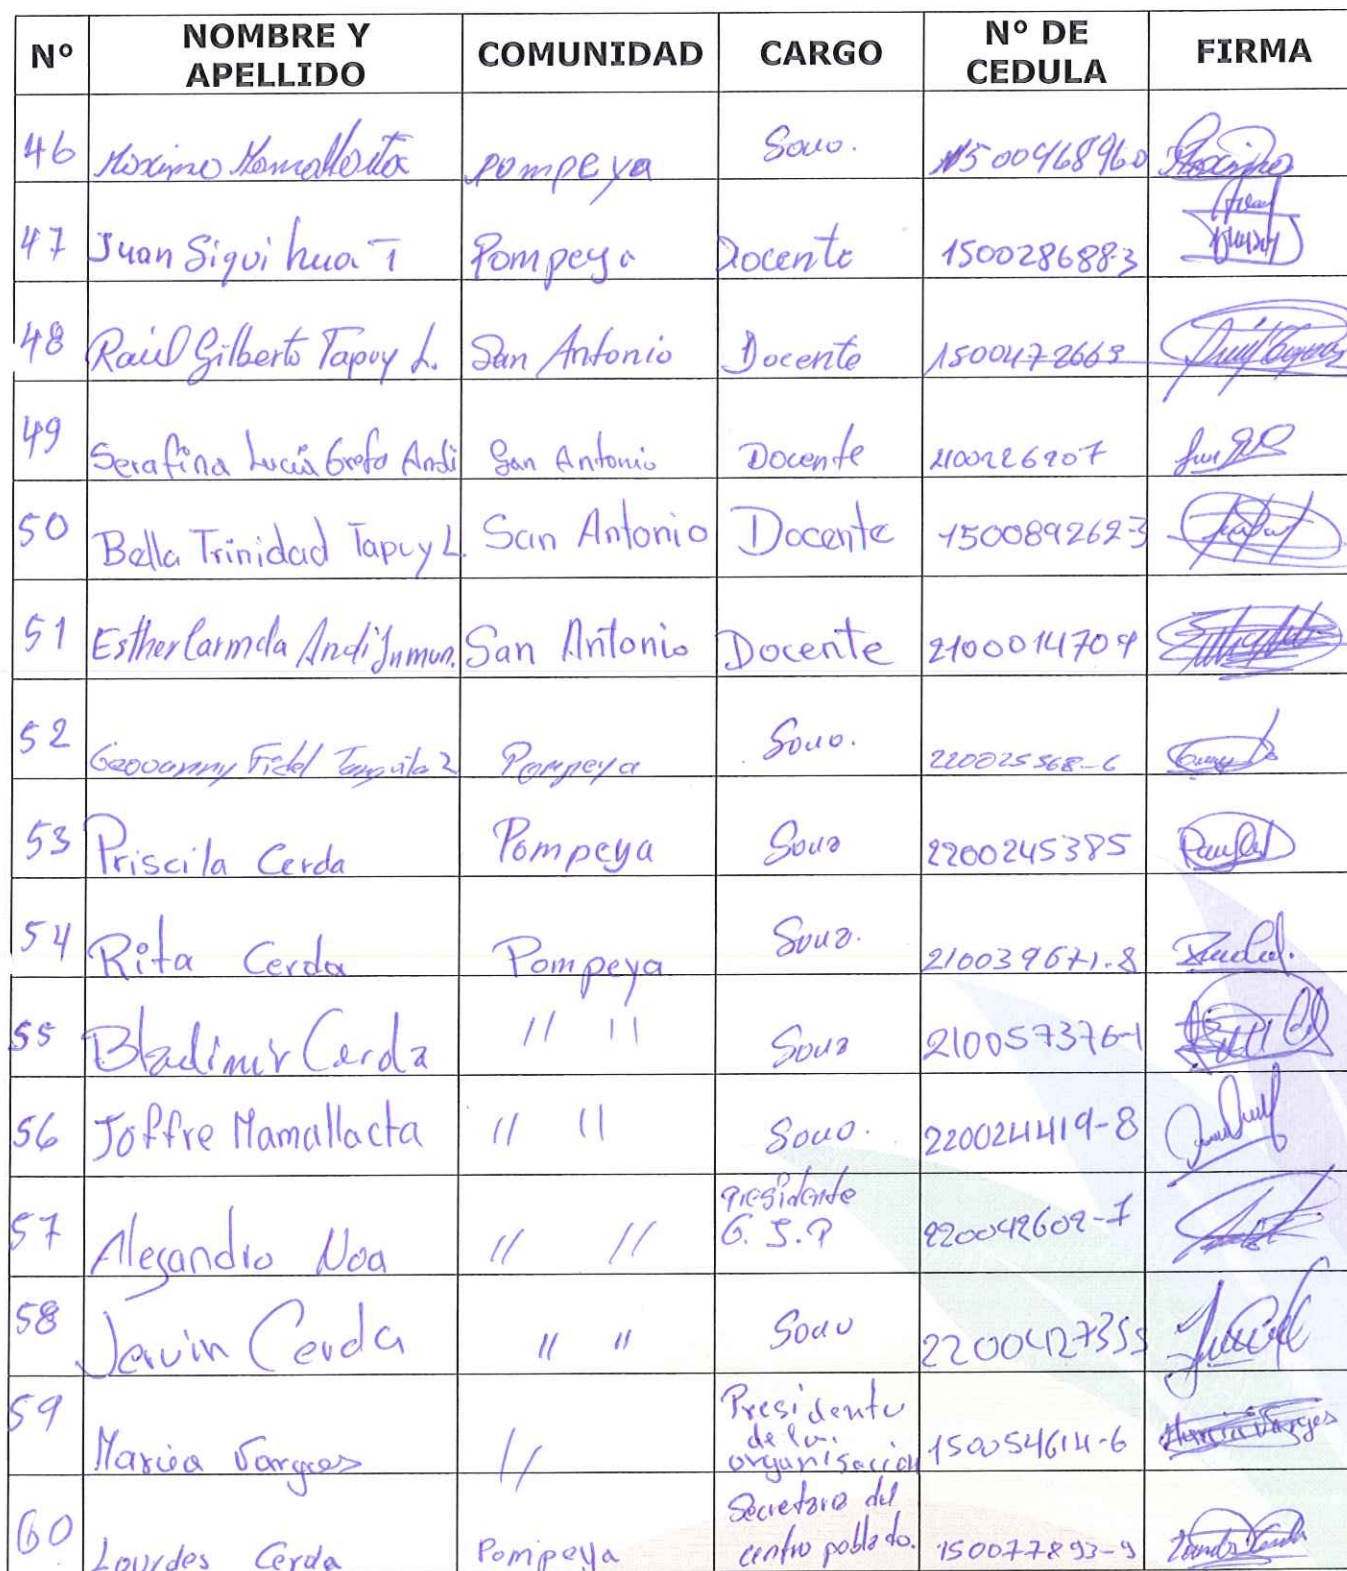 Nº NOMBRE Y APELLIDO COMUNIDAD CARGO Nº DE CEDULA FIRMA
46 Maximo Mamallacta Pompeya Socio. 1500468960
47 Juan Siquihua T Pompeya Docente 150028688-3
48 Raúl Gilberto Tapuy L. San Antonio Docente 1500472663
49 Serafina Lucía Grefa Andi San Antonio Docente 2100226907
50 Bella Trinidad Tapuy L. San Antonio Docente 150089262-3
51 Esther Carmela Andi San Antonio Docente 2100014709
52 Geovanny Fidel Pompeya Socio. 220025568-6
53 Priscila Cerda Pompeya Socia 2200245385
54 Rita Cerda Pompeya Socia. 210039671-8
55 Bladimir Cerda // // Socio 210057376-1
56 Joffre Mamallacta // // Socio. 220024419-8
57 Alegandro Noa // // Presidente G.J.P 220042602-7
58 Jervin Cerda // // Socio 2200427355
59 Vargas // Presidente de la organisación 150054614-6
60 Lourdes Cerda Pompeya Secretaria del centro poblado. 150077893-9